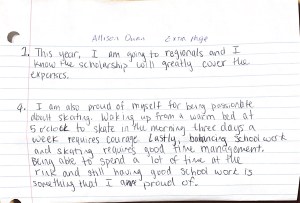 Allison Owen Extra Page
1. This year, I am going to regionals and I
know the scholarship will greatly cover the
expenses.
4. I am also proud of myself for being passionate
about skating. Waking up from a warm bed at
5 o'clock to skate in the morning three days a
week requires courage. Lastly, balancing school work
and skating requires good time management.
Being able to spend a lot of time at the
rink and still having good school work is
something that I am proud of.